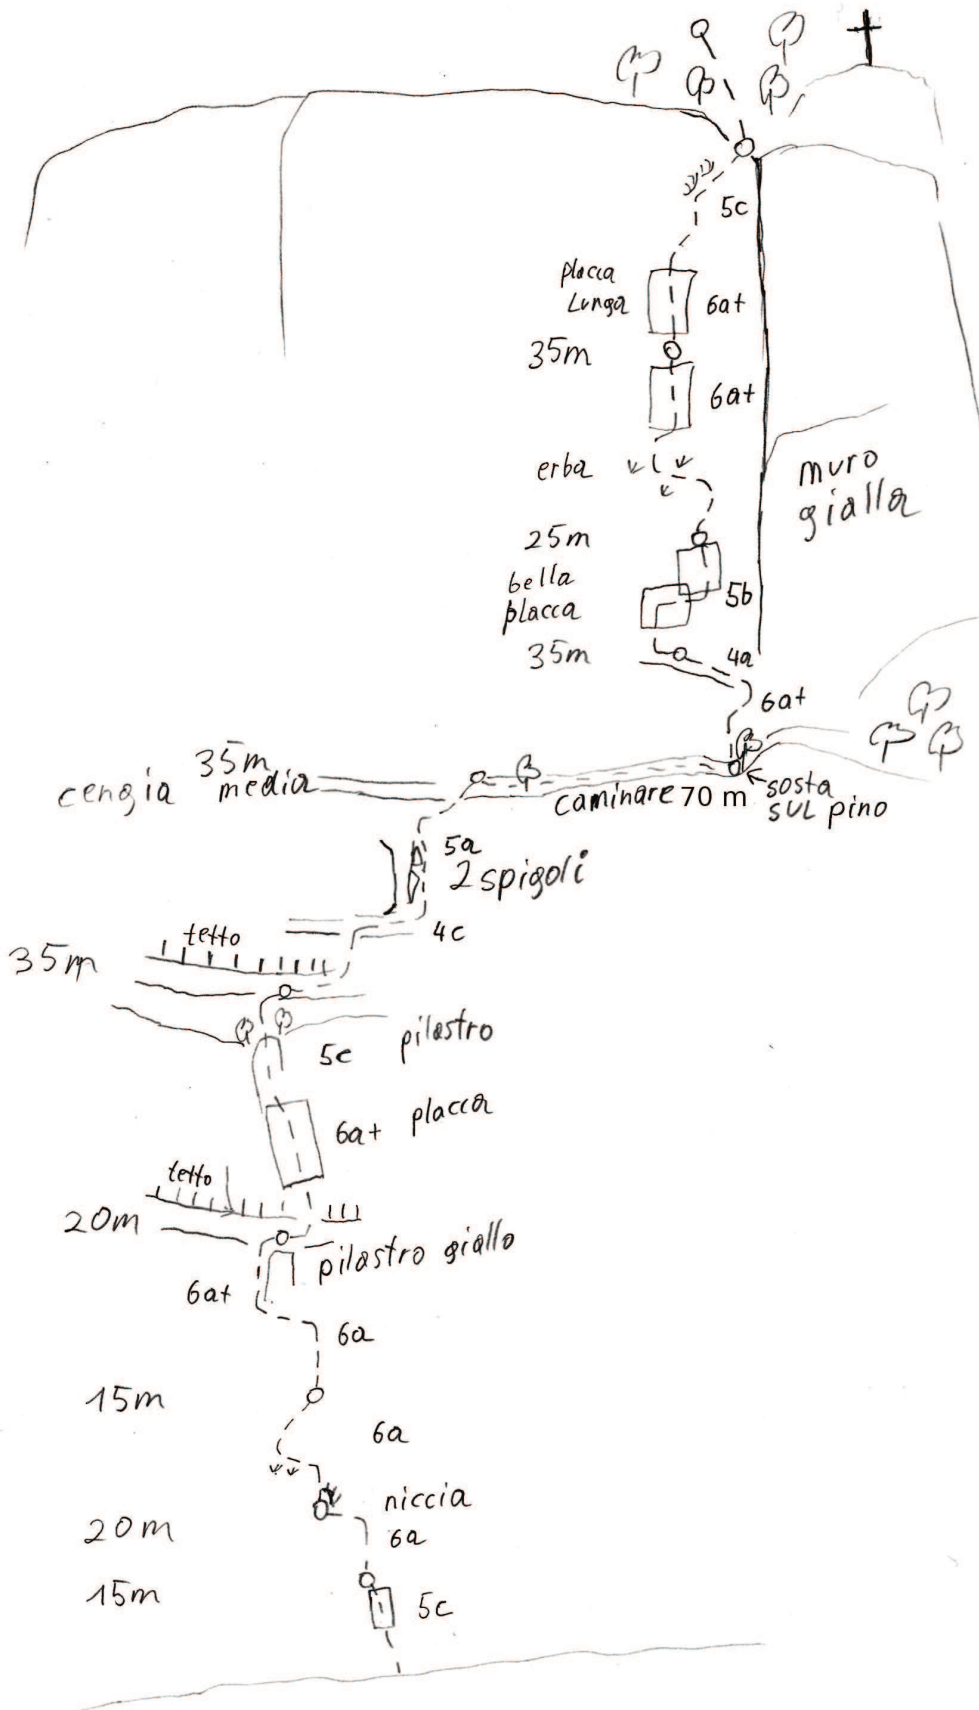 5c
placca
Lunga
6a+
35m
6a+
erba
muro
gialla
25m
bella
placca
5b
35m
4a
6a+
35m
cengia media
caminare 70 m
sosta
SUL pino
5a
2 spigoli
4c
tetto
35m
pilastro
5c
6a+ placca
tetto
20m
pilastro giallo
6a+
6a
15m
6a
niccia
20m
6a
15m
5c